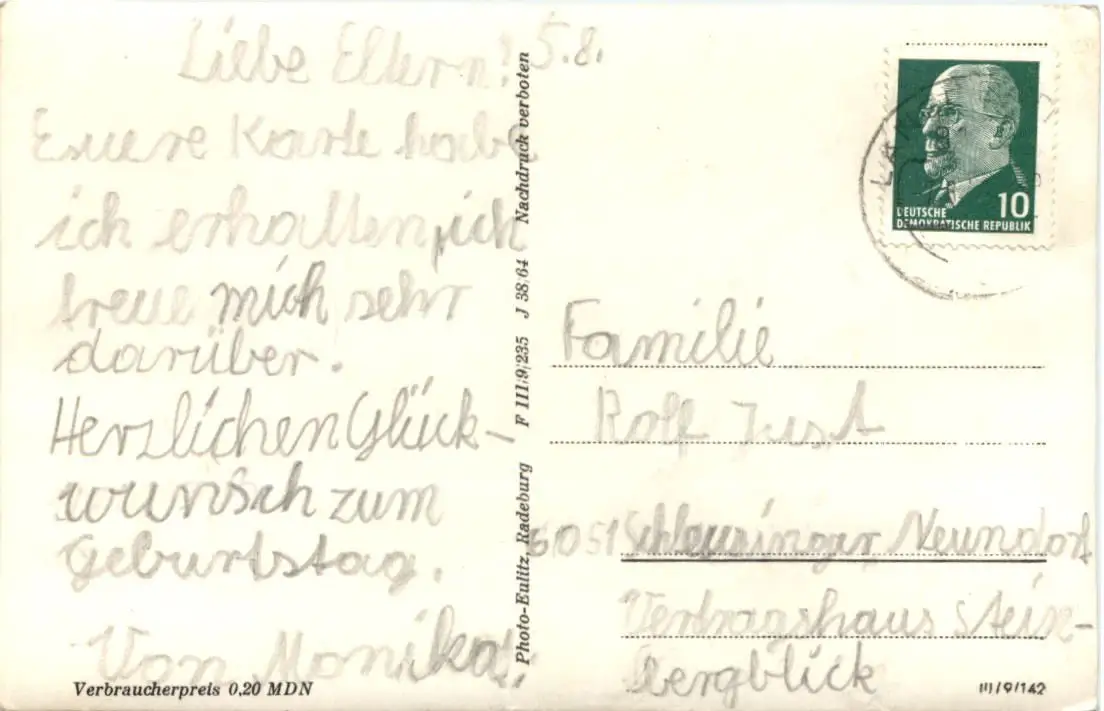 Liebe Eltern! 5.8.
Euere Karte habe
ich erhalten, ich
freue mich sehr
darüber.
Herzlichen Glück-
wunsch zum
Geburtstag.
Von Monika!
Verbraucherpreis 0,20 MDN
Photo-Eulitz, Radeburg F III/9/235 J 38/64 Nachdruck verboten
10
DEUTSCHE
DEMOKRATISCHE REPUBLIK
Familie
Rolf Just
6051 Schleusinger Neundorf
Vertragshaus Stein-
bergblick
III/9/142